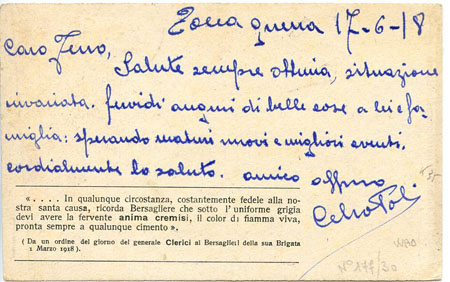 Zona guerra 17-6-18
Caro
Salute sempre ottima, situazione
invariata. fervidi auguri di belle cose a lei e fa-
miglia: sperando maturi nuovi e migliori eventi,
cordialmente lo saluto. amico
« . . . . In qualunque circostanza, costantemente fedele alla no-
stra santa causa, ricorda Bersagliere che sotto l' uniforme grigia
devi avere la fervente anima cremisi, il color di fiamma viva,
pronta sempre a qualunque cimento ».
( Da un ordine del giorno del generale Clerici ai Bersaglieri della sua Brigata
1 Marzo 1918 ).
N° 177/30